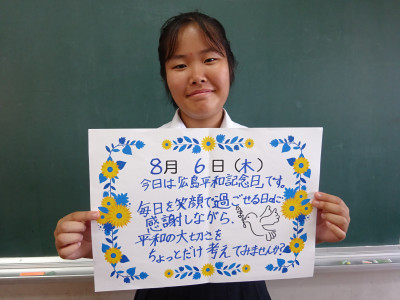 8月6日(木)
今日は「広島平和記念日」です。
毎日を笑顔で過ごせる日々に
感謝しながら、
平和の大切さを
ちょっとだけ考えてみませんか?